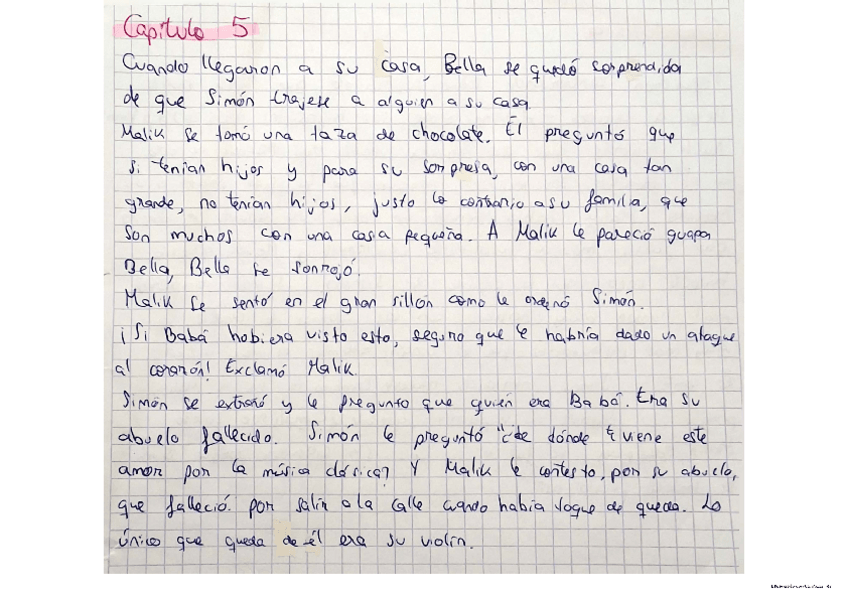 Capítulo 5
Cuando llegaron a su casa, Bella se quedó sorprendida
de que Simón trajese a alguien a su casa
Malik se tomó una taza de chocolate. Él preguntó que
si tenían hijos y para su sorpresa, con una casa tan
grande, no tenían hijos, justo lo contrario a su familia, que
son muchos con una casa pequeña. A Malik le pareció guapa
Bella, Bella se sonrojó.
Malik se sentó en el gran sillón como le ordenó Simón.
¡Si Babá hobiera visto esto, seguro que le habría dado un ataque
al corazón! Exclamó Malik
Simón se extrañó y le pregunto que quién era Babá. Era su
abuelo fallecido. Simón le preguntó "¿de dónde viene este
amor por la música clásica? Y Malik le contesto, por su abuelo,
que falleció por salir a la calle cuando había toque de queda. Lo
único que queda de él era su violín.